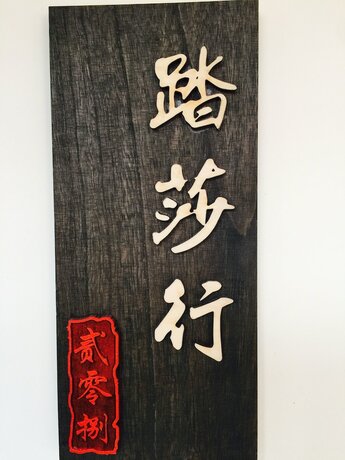 踏莎行
贰零捌